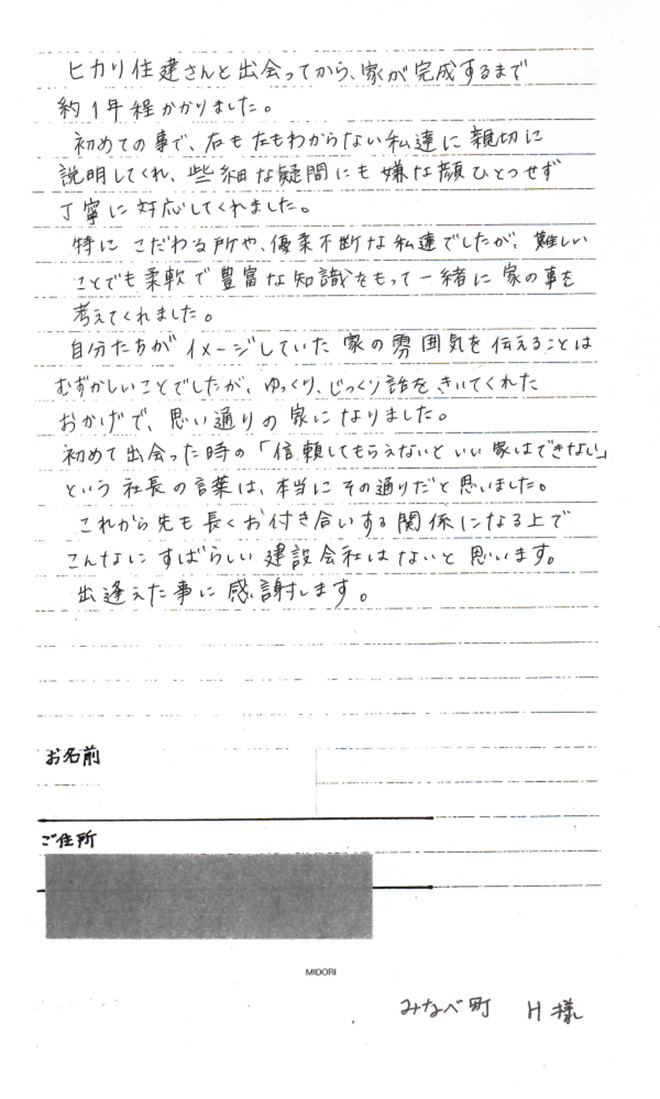 ヒカリ住建さんと出会ってから、家が完成するまで
約1年程かかりました。
初めての事で、右も左もわからない私達に親切に
説明してくれ、些細な疑問にも嫌な顔ひとつせず
丁寧に対応してくれました。
特にこだわる所や、優柔不断な私達でしたが、難しい
ことでも柔軟で豊富な知識をもって一緒に家の事を
考えてくれました。
自分たちがイメージしていた家の雰囲気を伝えることは
むずかしいことでしたが、ゆっくり、じっくり話をきいてくれた
おかげで、思い通りの家になりました。
初めて出会った時の「信頼してもらえないといい家はできない」
という社長の言葉は、本当にその通りだと思いました。
これから先も長くお付き合いする関係になる上で
こんなにすばらしい建設会社はないと思います。
出逢えた事に感謝します。
お名前
ご住所
MIDORI
みなべ町 H様